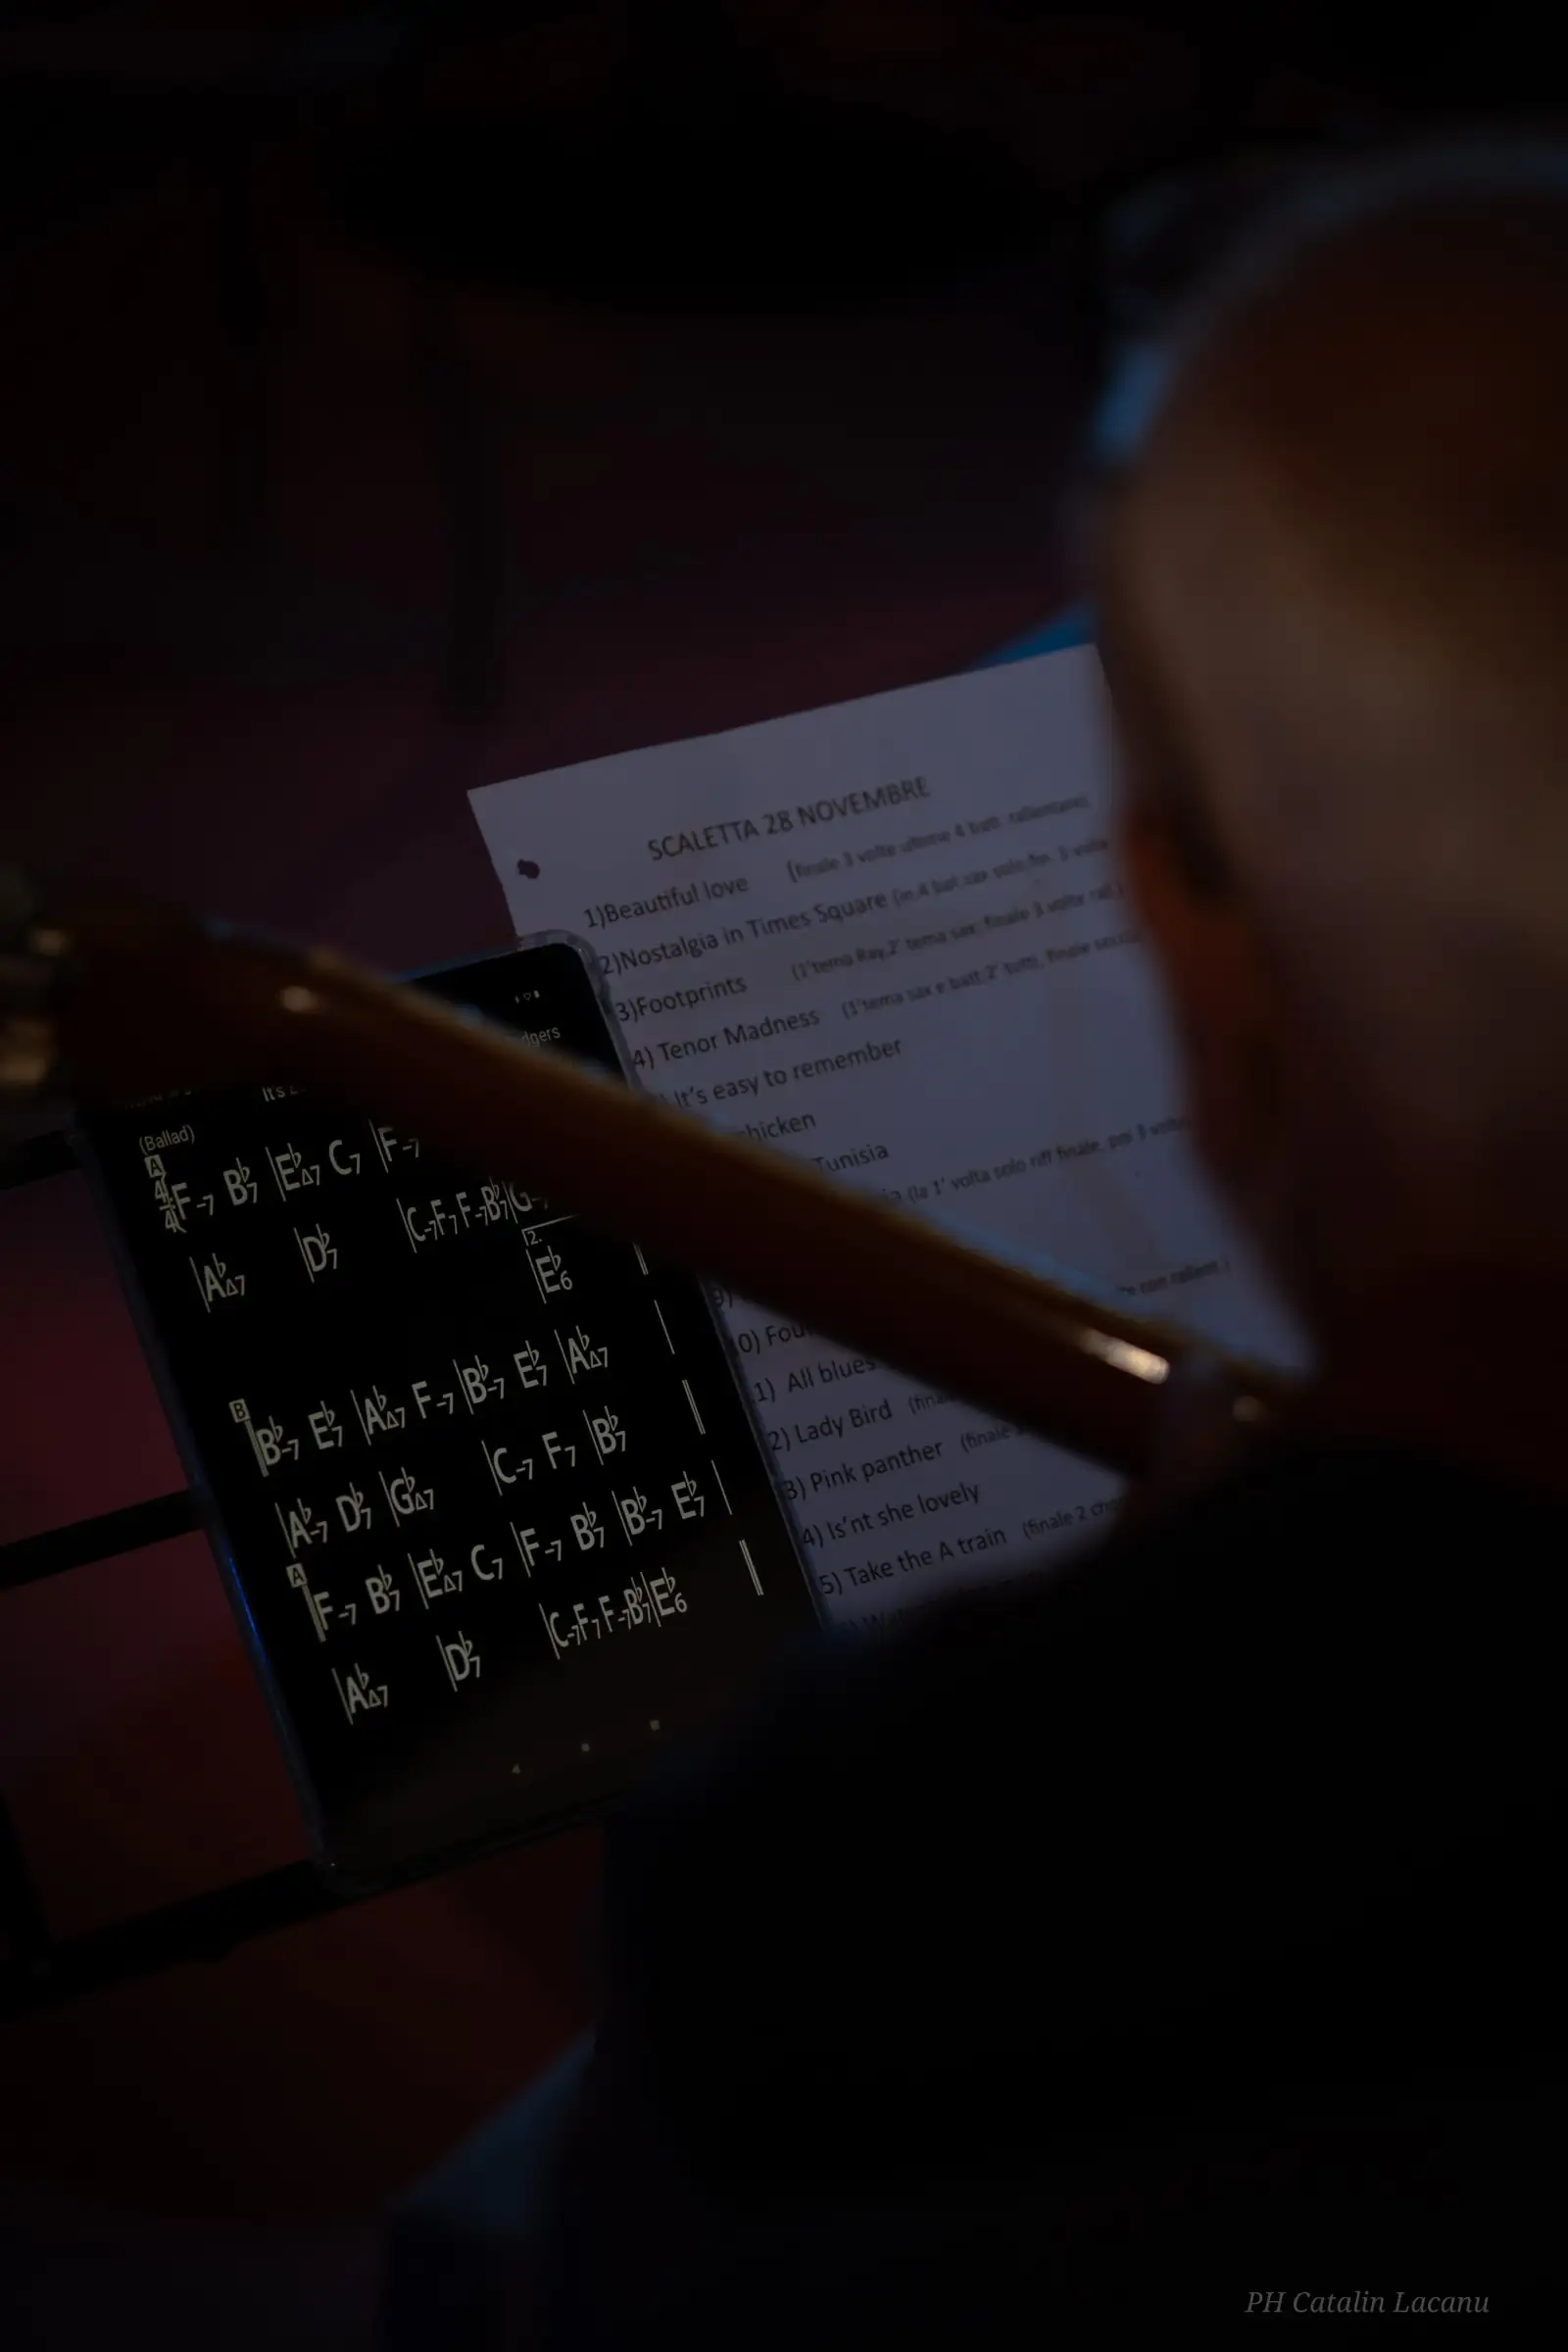 SCALETTA 28 NOVEMBRE
1)Beautiful love (finale 3 volte ultime 4 batt. rallentano)
2)Nostalgia in Times Square (in 4 bat sax solo, fin. 3 volte
3)Footprints (1'tema Ray,2' tema sax, finale 3 volte rall.)
4) Tenor Madness (1'tema sax e batt,2' tutti, finale
) It's easy to remember
chicken
Tunisia
(la 1' volta solo riff finale, poi 3 volte
con rallen.)
9)
0) Fou
1) All blues
2) Lady Bird (fina
3) Pink panther (finale
4) Is'nt she lovely
5) Take the A train (finale 2 cho
dgers
It's
(Ballad)
A
4 4 F-7 B♭7 |E♭Δ7 C7 |F-7
|A♭Δ7 |D♭7 |C-7 F7 F-7 B♭7 |G-7
2.
|E♭6
B
B♭-7 E♭7 |A♭Δ7 F-7 |B♭-7 E♭7 |A♭Δ7
|A♭-7 D♭7 |G♭Δ7 |C-7 F7 |B♭7
A
F-7 B♭7 |E♭Δ7 C7 |F-7 B♭7 |B♭-7 E♭7
|A♭Δ7 |D♭7 |C-7 F7 F-7 B♭7 |E♭6
PH Catalin Lacanu